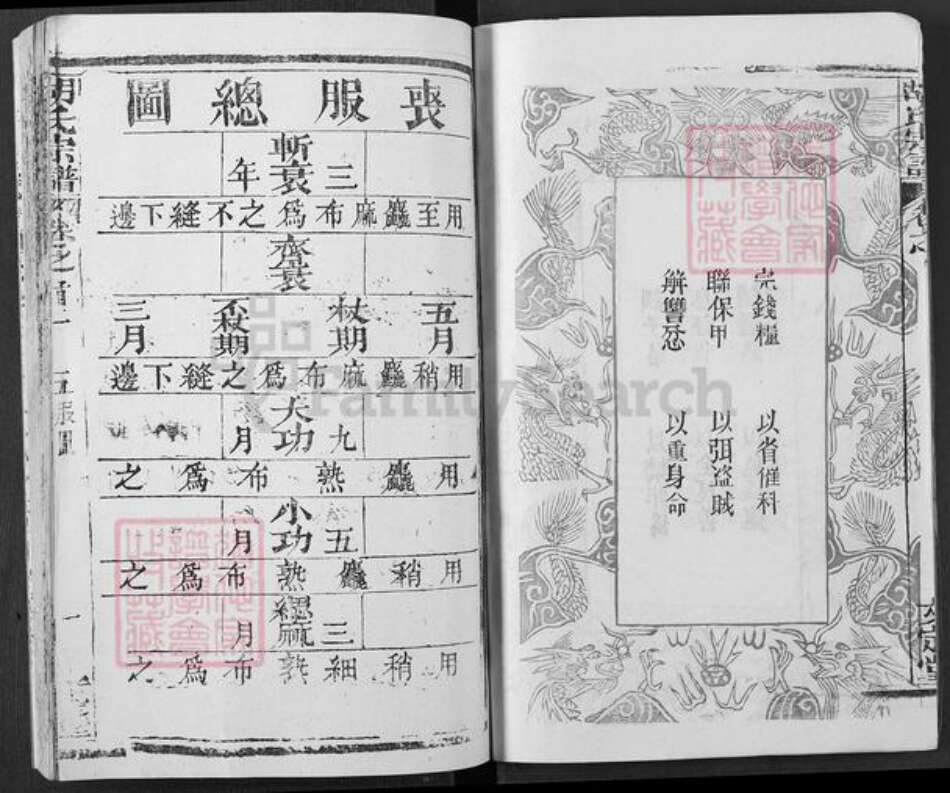 完錢糧　以省催科
聯保甲　以弭盜賊
解讐忿　以重身命
喪服總圖
斬衰三年
用至麤麻布為之不縫下邊
齊衰
五月
杖期
不杖期
三月
用稍麤麻布為之縫下邊
大功九月
用麤熟布為之
小功五月
用稍麤熟布為之
緦麻三月
用稍細熟布為之
胡氏宗譜
卷之首
五服圖
一
FamilySearch